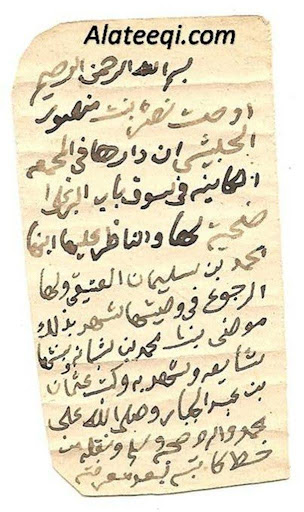 Alateeqi.com
بسم الله الرحمن الرحيم
اوصت نصره بنت منصور
ان دارها في المجمعه
الكاينه في سوق باب
ضحية لها والناظر عليها ابنها
احمد بن سليمان العتيقي ولها
الرجوع في وصيتها شهد بذلك
موضي بنت محمد بن
وشهد به وكتبه عثمان
بن عبد الجبار وصلى الله على
محمد واله وصحبه وسلم ونقله من
خط كاتبه بعد معرفته